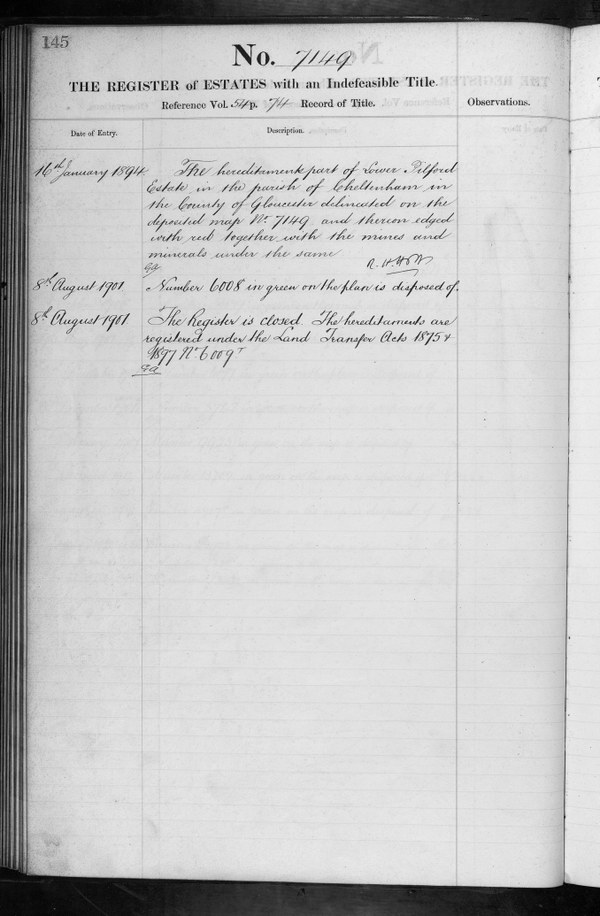 145
No. 7149
THE REGISTER of ESTATES with an Indefeasible Title.
Reference Vol. 54 p. 74 Record of Title.
Observations.
Date of Entry.
Description.
16th January 1894
The hereditaments part of Lower Pilford
Estate in the parish of Cheltenham in
the County of Gloucester delineated on the
deposited map No 7149 and thereon edged
with red together with the mines and
minerals under the same
8th August 1901
Number 6008 in green on the plan is disposed of.
8th August 1901
The Register is closed. The hereditaments are
registered under the Land Transfer Acts 1875 &
1897 No 6009